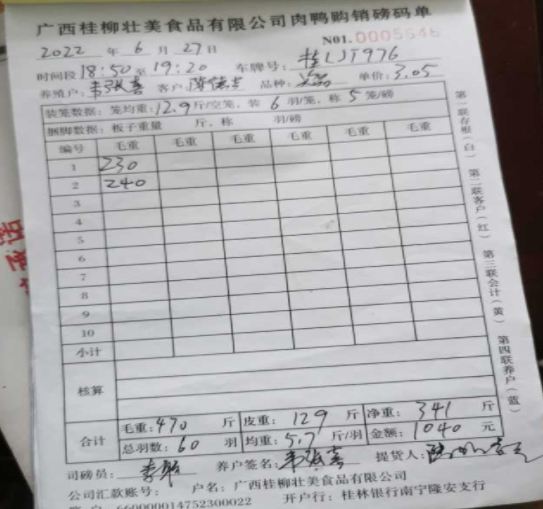 广西桂柳壮美食品有限公司肉鸭购销磅码单
NO1.0005546
2022 年 6 月 27 日
时间段 18:50 至 19:20 车牌号: 桂LJT976
养殖户: 韦张喜 客户: 陈德 品种: 单价: 3.05
装笼数据: 笼均重: 12.9 斤/空笼、装 6 羽/笼、称 5 笼/磅
捆脚数据: 板子重量 斤、称 羽/磅
编号 毛重 毛重 毛重 毛重 毛重 毛重
1 230
2 240
3
4
5
6
7
8
9
10
小计
核算
合计 毛重: 470 斤 皮重: 129 斤 净重: 341 斤
总羽数: 60 羽 均重: 5.7 斤/羽 金额: 1040 元
司磅员: 养户签名: 韦张喜 提货人:
公司汇款账号: 户名: 广西桂柳壮美食品有限公司
660000014752300022 开户行: 桂林银行南宁隆安支行
第一联存根(白) 第二联客户(红) 第三联会计(黄) 第四联养户(蓝)